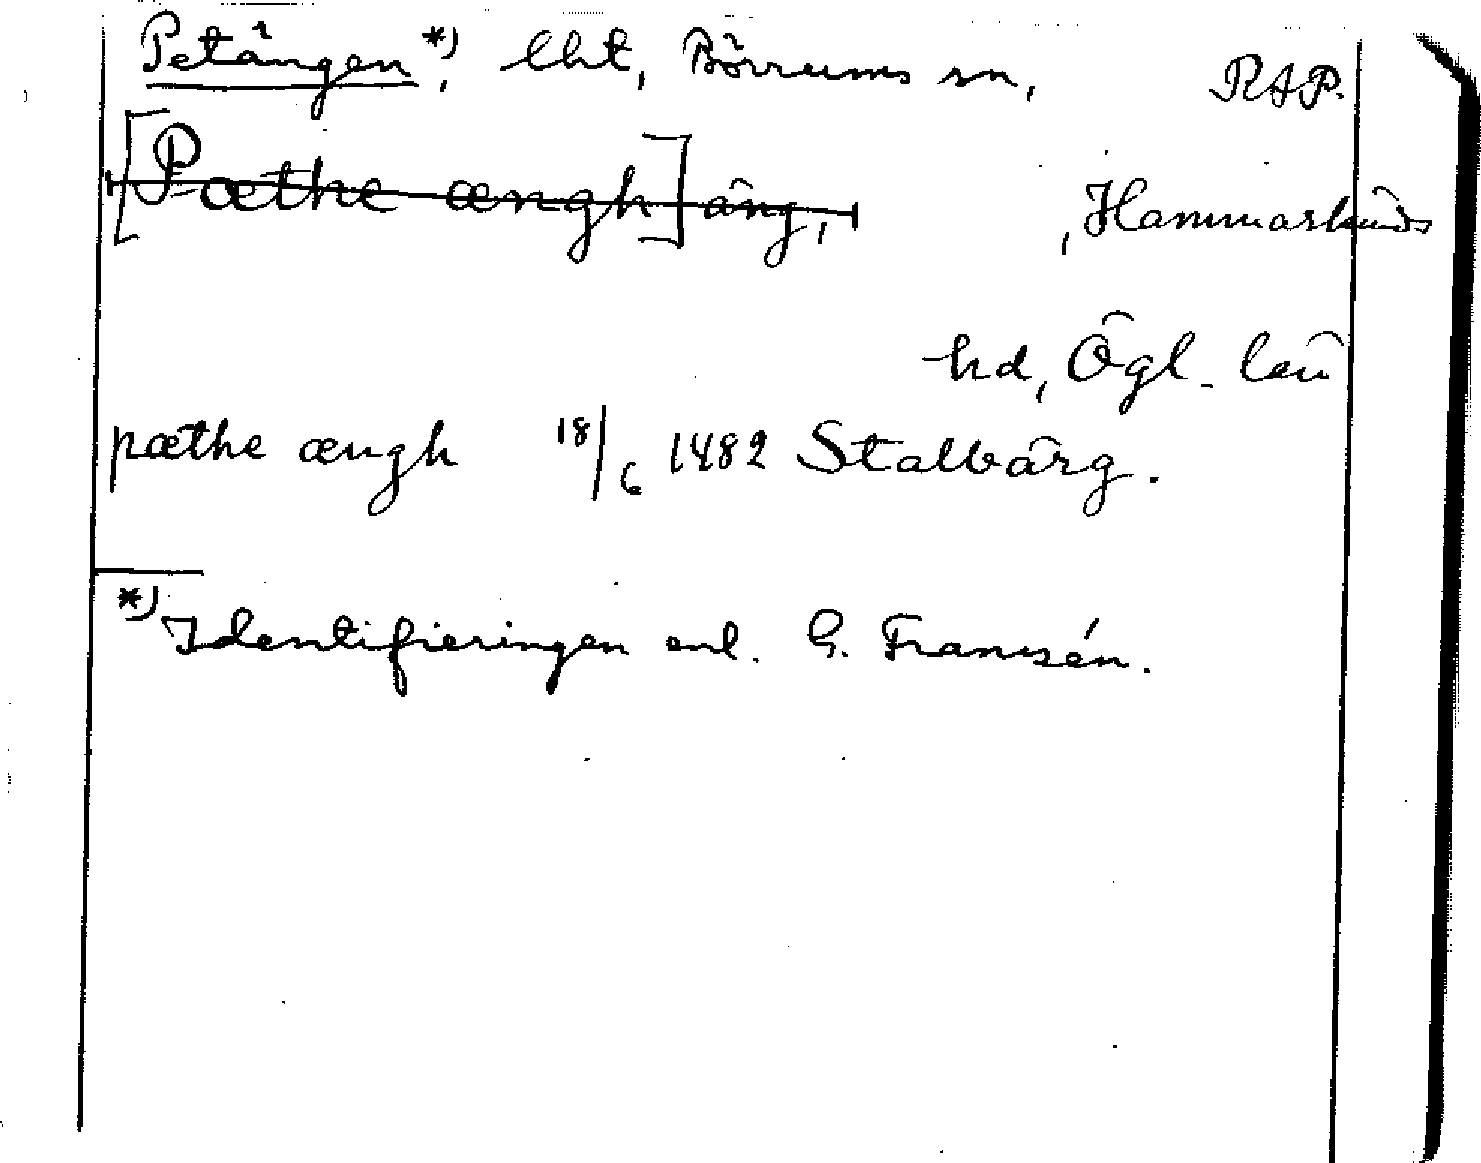 Petängen *), lht, Börrums sn, RAP.
[Pæthe ængh] äng, , Hammarkinds
hd, Ögl. län
pæthe ængh 18/6 1482 Stalbärg.
*) Identifieringen enl. G. Franzén.